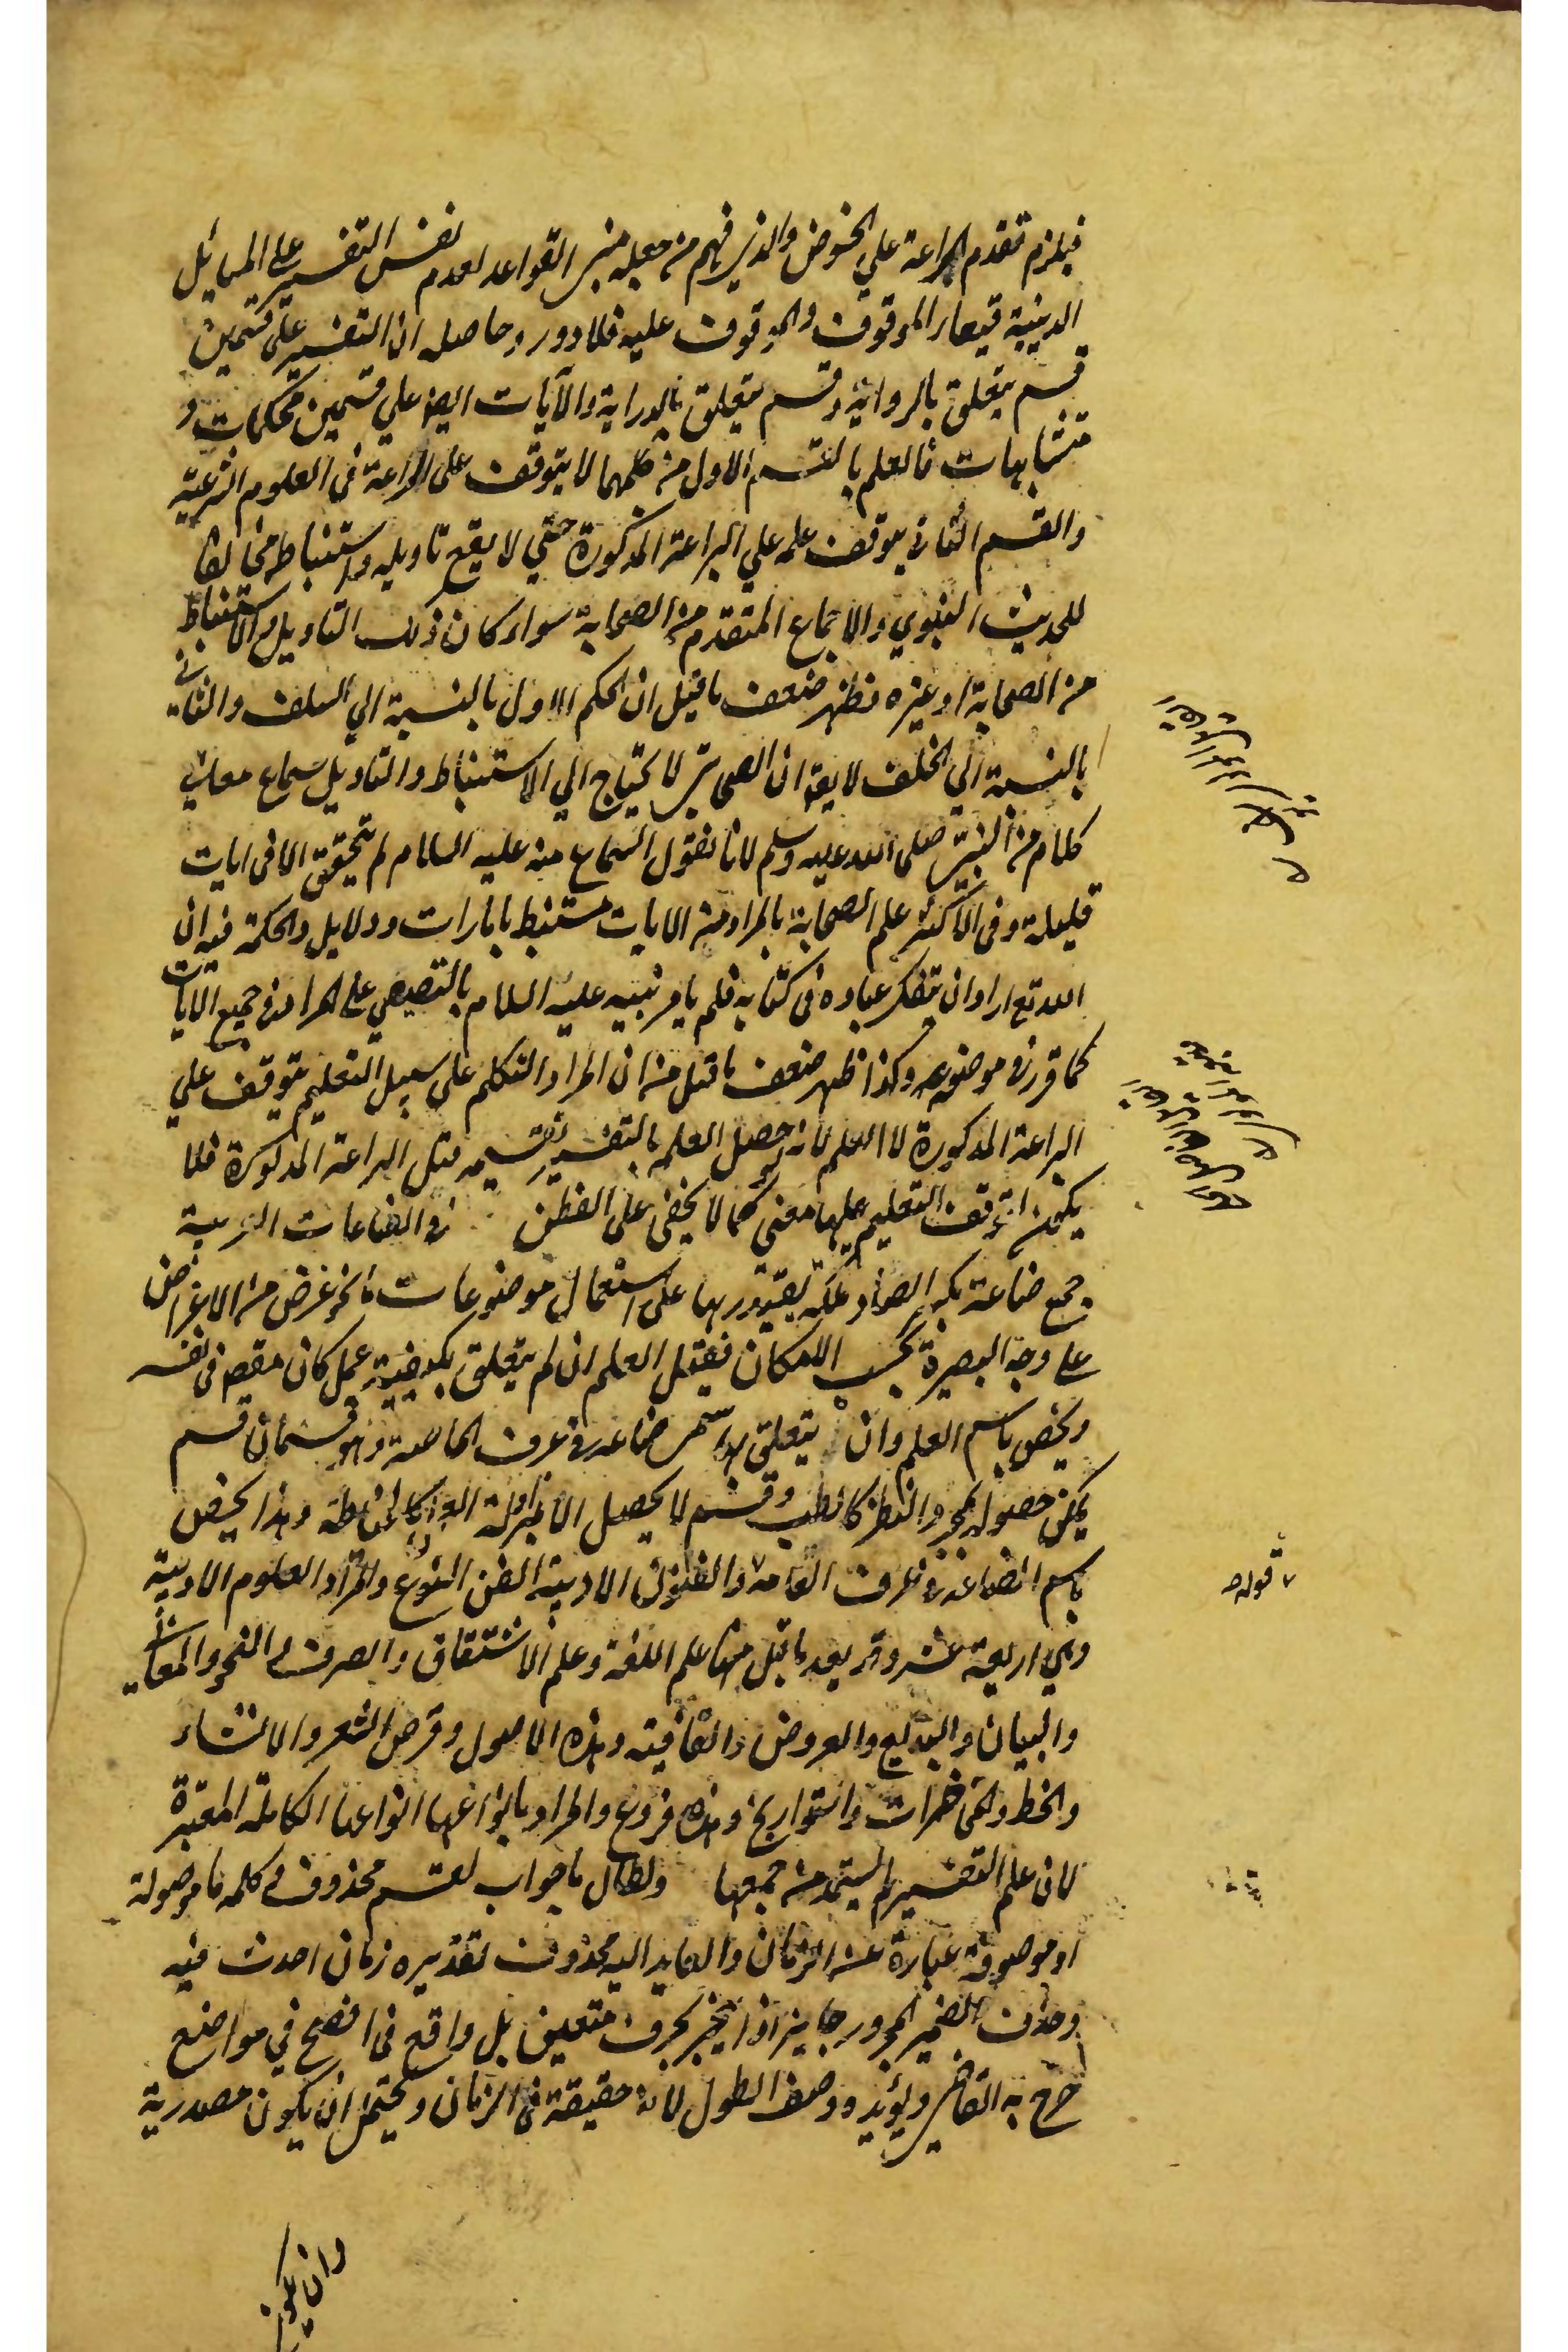 فيلزم تقدم البراعة علي الخوض والذي فهم من جعله مبني القواعد لعدم نفس التفسير على المسائل
الدينية فتغاير الموقوف والموقوف عليه فلا دور وحاصله ان التفسير على قسمين
قسم يتعلق بالرواية وقسم يتعلق بالدراية والآيات ايضا علي قسمين محكمات و
متشابهات فالعلم بالقسم الاول من كلمهما لا يتوقف على البراعة في العلوم الشرعية
والقسم الثاني يتوقف علمه علي البراعة المذكورة حتي لا يقع تاويله واستنباطه مخالفا
للحديث النبوي والاجماع المتقدم من الصحابة سواء كان ذلك التاويل والاستنباط
من الصحابة او غيره فظهر ضعف ما قيل ان الحكم الاول بالنسبة الي السلف والثاني
بالنسبة الي الخلف لا يقال ان الصحابي لا يحتاج الي الاستنباط والتاويل سماع معاني
كلام من النبي صلى الله عليه وسلم لانا نقول السماع منه عليه السلام لم يتحقق الا في ايات
قليلة وفي الاكثر علم الصحابة بالمراد من الايات مستنبط بامارات ودلايل والحكمة فيه ان
الله تع اراد ان يتفكر عباده في كتابه فلم يامر نبيه عليه السلام بالتنصيص على المراد في جميع الايات
كما قرر في موضوعه وكذا ظهر ضعف ما قيل من ان المراد التكلم على سبيل التعليم يتوقف علي
البراعة المذكورة لا العلم لانه لو حصل العلم بالتفسير بقسميه قبل البراعة المذكورة فلا
يكون لتوقف التعليم عليها معني كما لا يخفى على الفطن في الصناعات العربية
جمع صناعة بكسر الصاد ملكة يقتدر بها على استعمال موضوعات ما لنحو غرض من الاغراض
على وجه البصيرة بحسب الامكان فقيل العلم ان لم يتعلق بكيفية عمل كان مقصودا في نفسه
ويخص باسم العلم وان يتعلق بها سمي صناعة في عرف الخاصة وهو قسمان قسم
يمكن حصوله بمجرد النظر كالطب وقسم لا يحصل الا بمزاولة العمل كالخياطة وهذا يخص
باسم الصناعة في عرف العامة والفنون الادبية الفن النوع والمراد العلوم الادبية
وهي اربعة عشر وقد يعد ما قبل منها علم اللغة وعلم الاشتقاق والصرف والنحو والمعاني
والبيان والبديع والعروض والقافية وهذه الاصول وقرض الشعر والانشاء
والخط والمحاضرات والتواريخ وهذه فروع والمراد بانواعها انواعها الكاملة المعتبرة
لان علم التفسير لم يستمد من جميعها ولطال ما جواب لقسم محذوف وكلمة ما موصولة
او موصوفة عبارة عن الزمان والعايد اليه محذوف تقديره زمان احدث فيه
وحذف الضمير المجرور جايز اذا انجر بحرف متعين بل واقع في افصح في مواضع
صرح به القاضي ويؤيده وصف الطول لانه حقيقة في الزمان ويحتمل ان يكون مصدرية
قوله
وان يكون